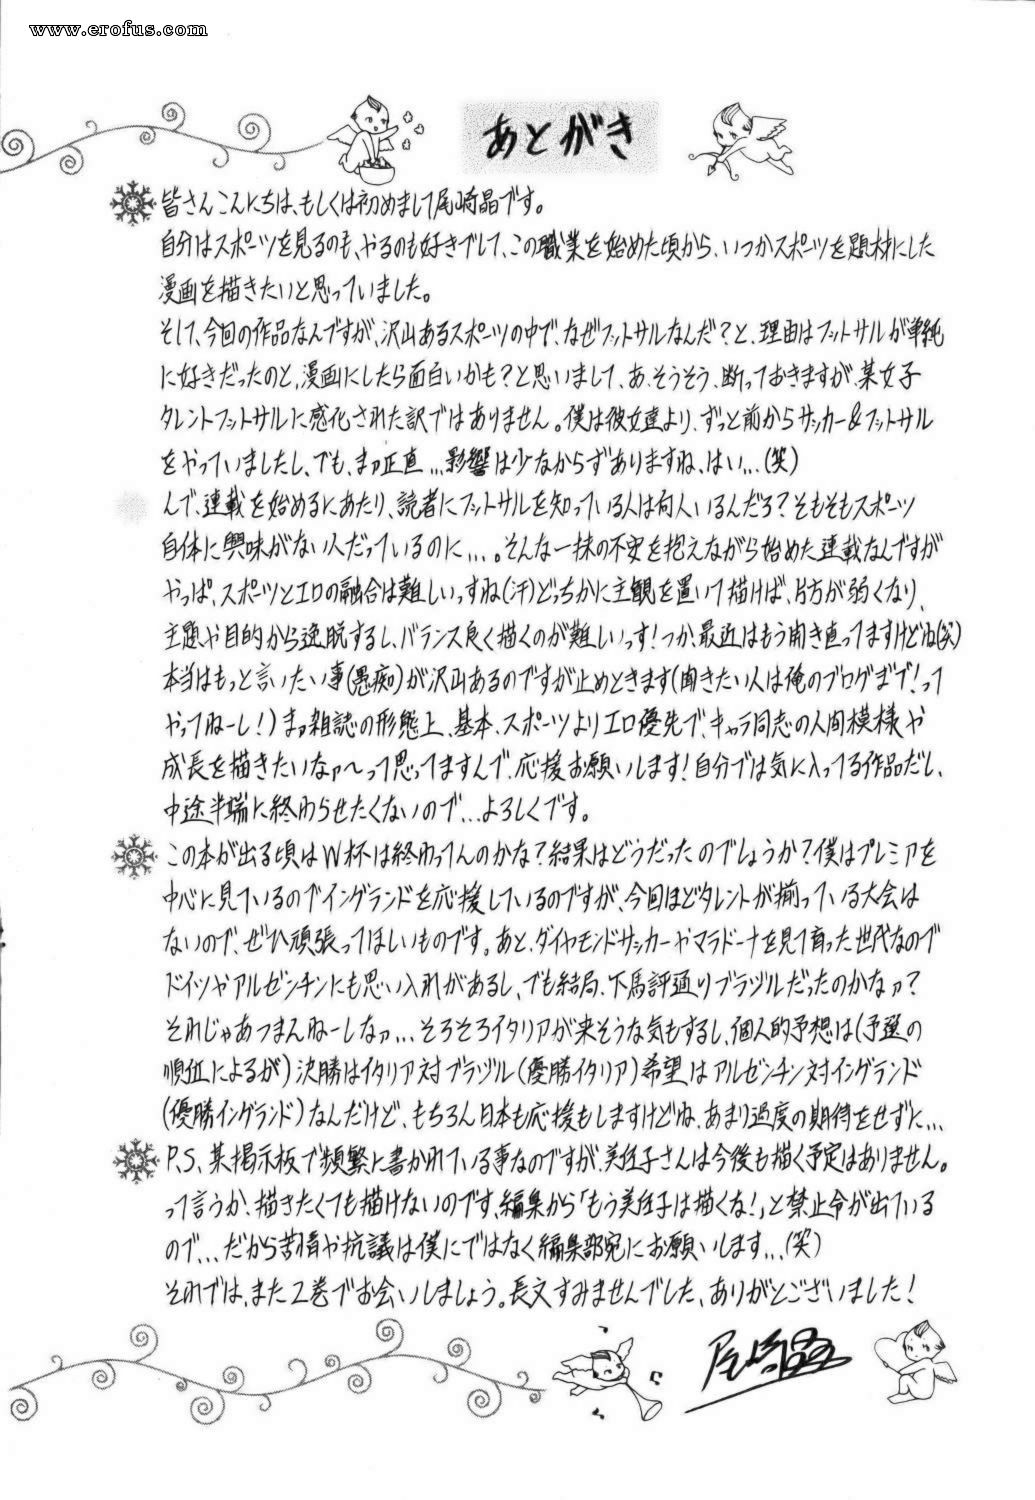 www.erofus.com
あとがき
皆さんこんにちは、もしくは初めまして尾崎晶です。
自分はスポーツを見るのも、やるのも好きでして、この職業を始めた頃から、いつかスポーツを題材にした
漫画を描きたいと思っていました。
そして、今回の作品なんですが、沢山あるスポーツの中で、なぜフットサルなんだ?と、理由はフットサルが単純
に好きだったのと、漫画にしたら面白いかも?と思いまして、あ、そうそう、断っておきますが、某女子
タレントフットサルに感化された訳ではありません。僕は彼女達より、ずっと前からサッカー&フットサル
をやっていましたし、でも、まァ正直...影響は少なからずありますね、はい...(笑)
んで、連載を始めるにあたり、読者にフットサルを知っている人は何人いるんだろ?そもそもスポーツ
自体に興味がない人だっているのに...。そんな一抹の不安を抱えながら始めた連載なんですが
やっぱ、スポーツとエロの融合は難しいっすね(汗)どっちかに主観を置いて描けば、片方が弱くなり、
主題や目的から逸脱するし、バランス良く描くのが難しいっす!つか、最近はもう開き直ってますけどね(笑)
本当はもっと言いたい事(愚痴)が沢山あるのですが止めときます(聞きたい人は俺のブログまで!って
やってねーし!)まァ雑誌の形態上、基本、スポーツよりエロ優先で、キャラ同志の人間模様や
成長を描きたいなァ〜って思ってますんで、応援お願いします!自分では気に入ってる作品だし、
中途半端に終わらせたくないので...よろしくです。
この本が出る頃はW杯は終わってんのかな?結果はどうだったのでしょうか?僕はプレミアを
中心に見ているのでイングランドを応援しているのですが、今回ほどタレントが揃っている大会は
ないので、ぜひ頑張ってほしいものです。あと、ダイヤモンドサッカーやマラドーナを見て育った世代なので
ドイツやアルゼンチンにも思い入れがあるし、でも結局、下馬評通りブラヅルだったのかなァ?
それじゃあつまんねーしなァ...そろそろイタリアが来そうな気もするし、個人的予想は(予選の
順位によるが)決勝はイタリア対ブラヅル(優勝イタリア)希望はアルゼンチン対イングランド
(優勝イングランド)なんだけど、もちろん日本も応援もしますけどね、あまり過度の期待をせずに...
P.S、某掲示板で頻繁に書かれている事なのですが、美佐子さんは今後も描く予定はありません。
って言うか、描きたくても描けないのです、編集から「もう美佐子は描くな!」と禁止令が出ている
ので...だから苦情や抗議は僕にではなく編集部宛にお願いします...(笑)
それでは、また2巻でお会いしましょう。長文すみませんでした、ありがとございました!
尾崎晶